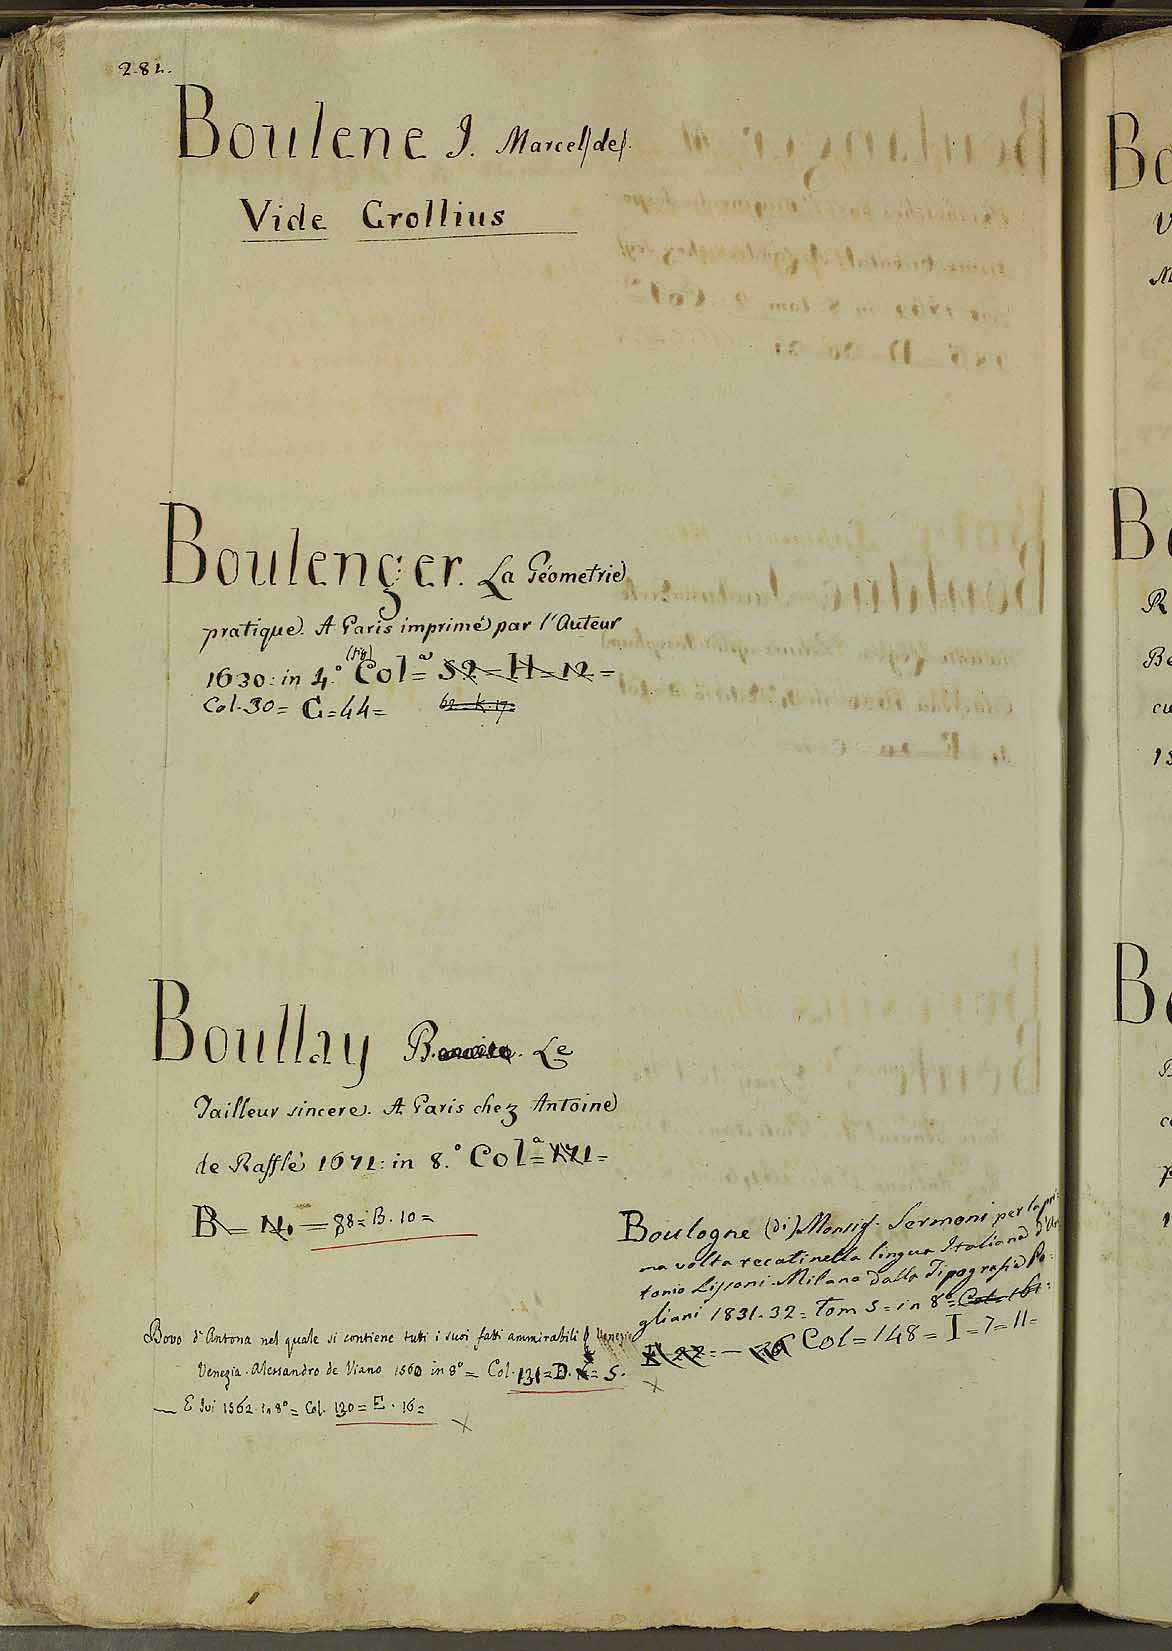 282.
Boulene J. Marcel (de).
Vide Crollius
Boulenger. La Géometrie
pratique. A Paris imprimé par l'Auteur
(fig)
1630: in 4.° Col.ª = 52 = H = 12 =
Col. 30 = C = 44 = 62 = K. 17 =
Boullay B. Le
Tailleur sincere. A Paris chez Antoine
de Rafflé 1671: in 8.° Col.ª = 171 =
B = N. = 88 = B. 10 =
Boulogne (di) Monsig. Sermoni per la pri-
ma volta recati nella lingua Italiana d'An
tonio Lissoni. Milano dalla Tipografia Po-
gliani 1831-32 = Tom 5 = in 8° = Col. 161 =
E. 22 = Col = 148 = I = 7 = 11 =
Bovo d'Antona nel quale si contiene tutti i suoi fatti ammirabili
Venezia. Alessandro de Viano 1560 in 8° = Col. 131 = D. = 5.
E Ivi 1562 in 8° = Col. 130 = E. 16 =
Bo
Bo
R
Be
cu
Bo